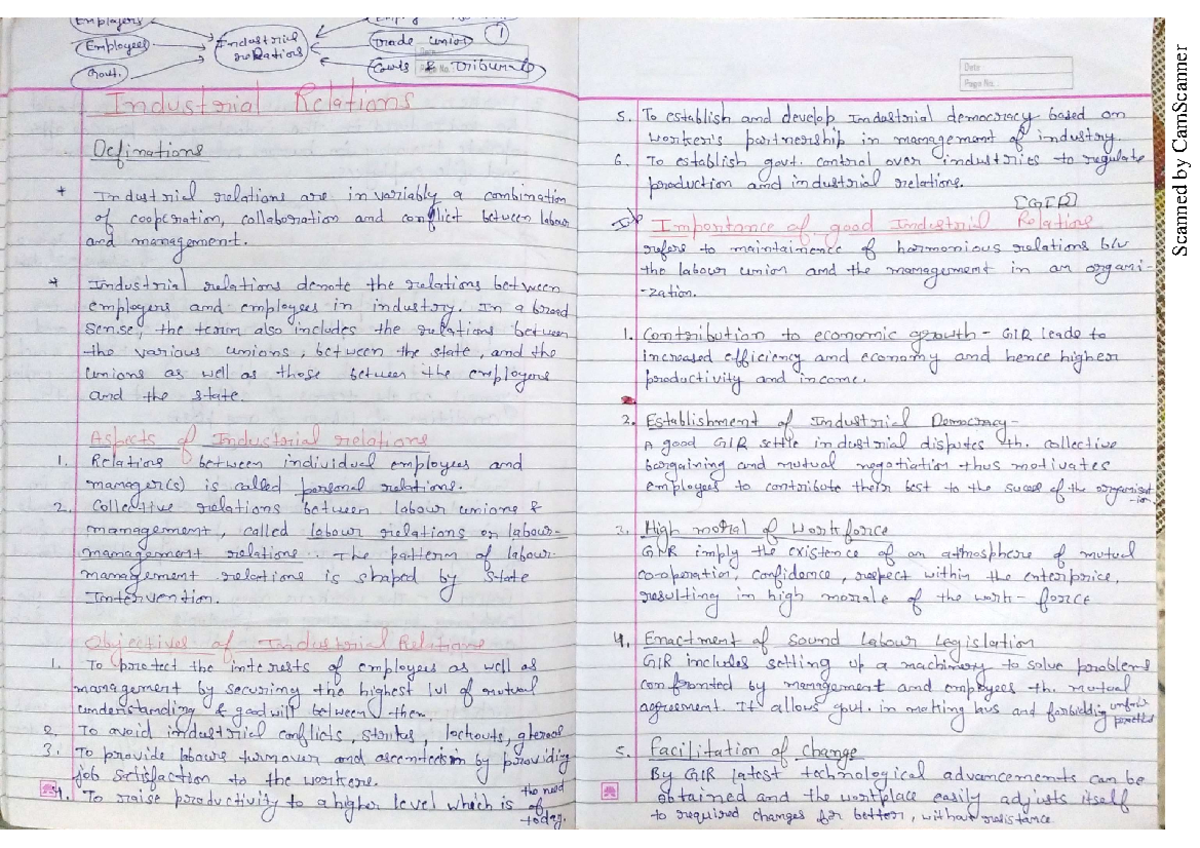 Employers
Employees
Govt.
Industrial
relations
Trade union
Courts & Tribunals
1
Date
Page No.
Industrial Relations
Definations
* Industrial relations are invariably a combination
of cooperation, collaboration and conflict between labour
and management.
* Industrial relations denote the relations between
employers and employees in industory. In a broad
sense, the term also includes the relations between
the various unions, between the state, and the
unions as well as those between the employers
and the state.
Aspects of Industrial relations
1. Relations between individual employees and
manager(s) is called personal relations.
2. Collective relations between labour unions &
management, called labour relations or labour-
management relations. The pattern of labour-
management relations is shaped by State
Intervention.
Objectives of Industrial Relations
1. To protect the interests of employees as well as
management by securing the highest lvl of mutual
understanding & goodwill between them.
2. To avoid industrial conflicts, strikes, lockouts,
3. To provide labours turnover and by providing
job satisfaction to the workers.
4. To raise productivity to a higher level which is the need
of today.
Date
Page No.
5. To establish and develop Industrial democracy based on
worker's partnership in management of industry.
6. To establish govt. control over industries to regulate
production and industrial relations.
[GIR]
Importance of good Industrial Relations
refers to maintainence of harmonious relations b/w
the labour union and the management in an organi-
-zation.
1. Contribution to economic growth - GIR leads to
increased efficiency and economy and hence higher
productivity and income.
2. Establishment of Industrial Democracy-
A good GIR settle industrial disputes th. collective
bargaining and mutual negotiation thus motivates
employees to contribute their best to the sucess of the organisat
-ion
3. High moral of workforce
GIR imply the existence of an atmosphere of mutual
co-operation, confidence, respect within the enterprice,
resulting in high morale of the work-force
4. Enactment of Sound Labour Legislation
GIR includes setting up a machinery to solve problems
confronted by management and employees th. mutual
agreement. It allows govt. in making laws and forbidding unfair
practices
5. Facilitation of change
By GIR latest technological advancements can be
obtained and the workplace easily adjusts itself
to required changes for better, without resistance.
Scanned by CamScanner